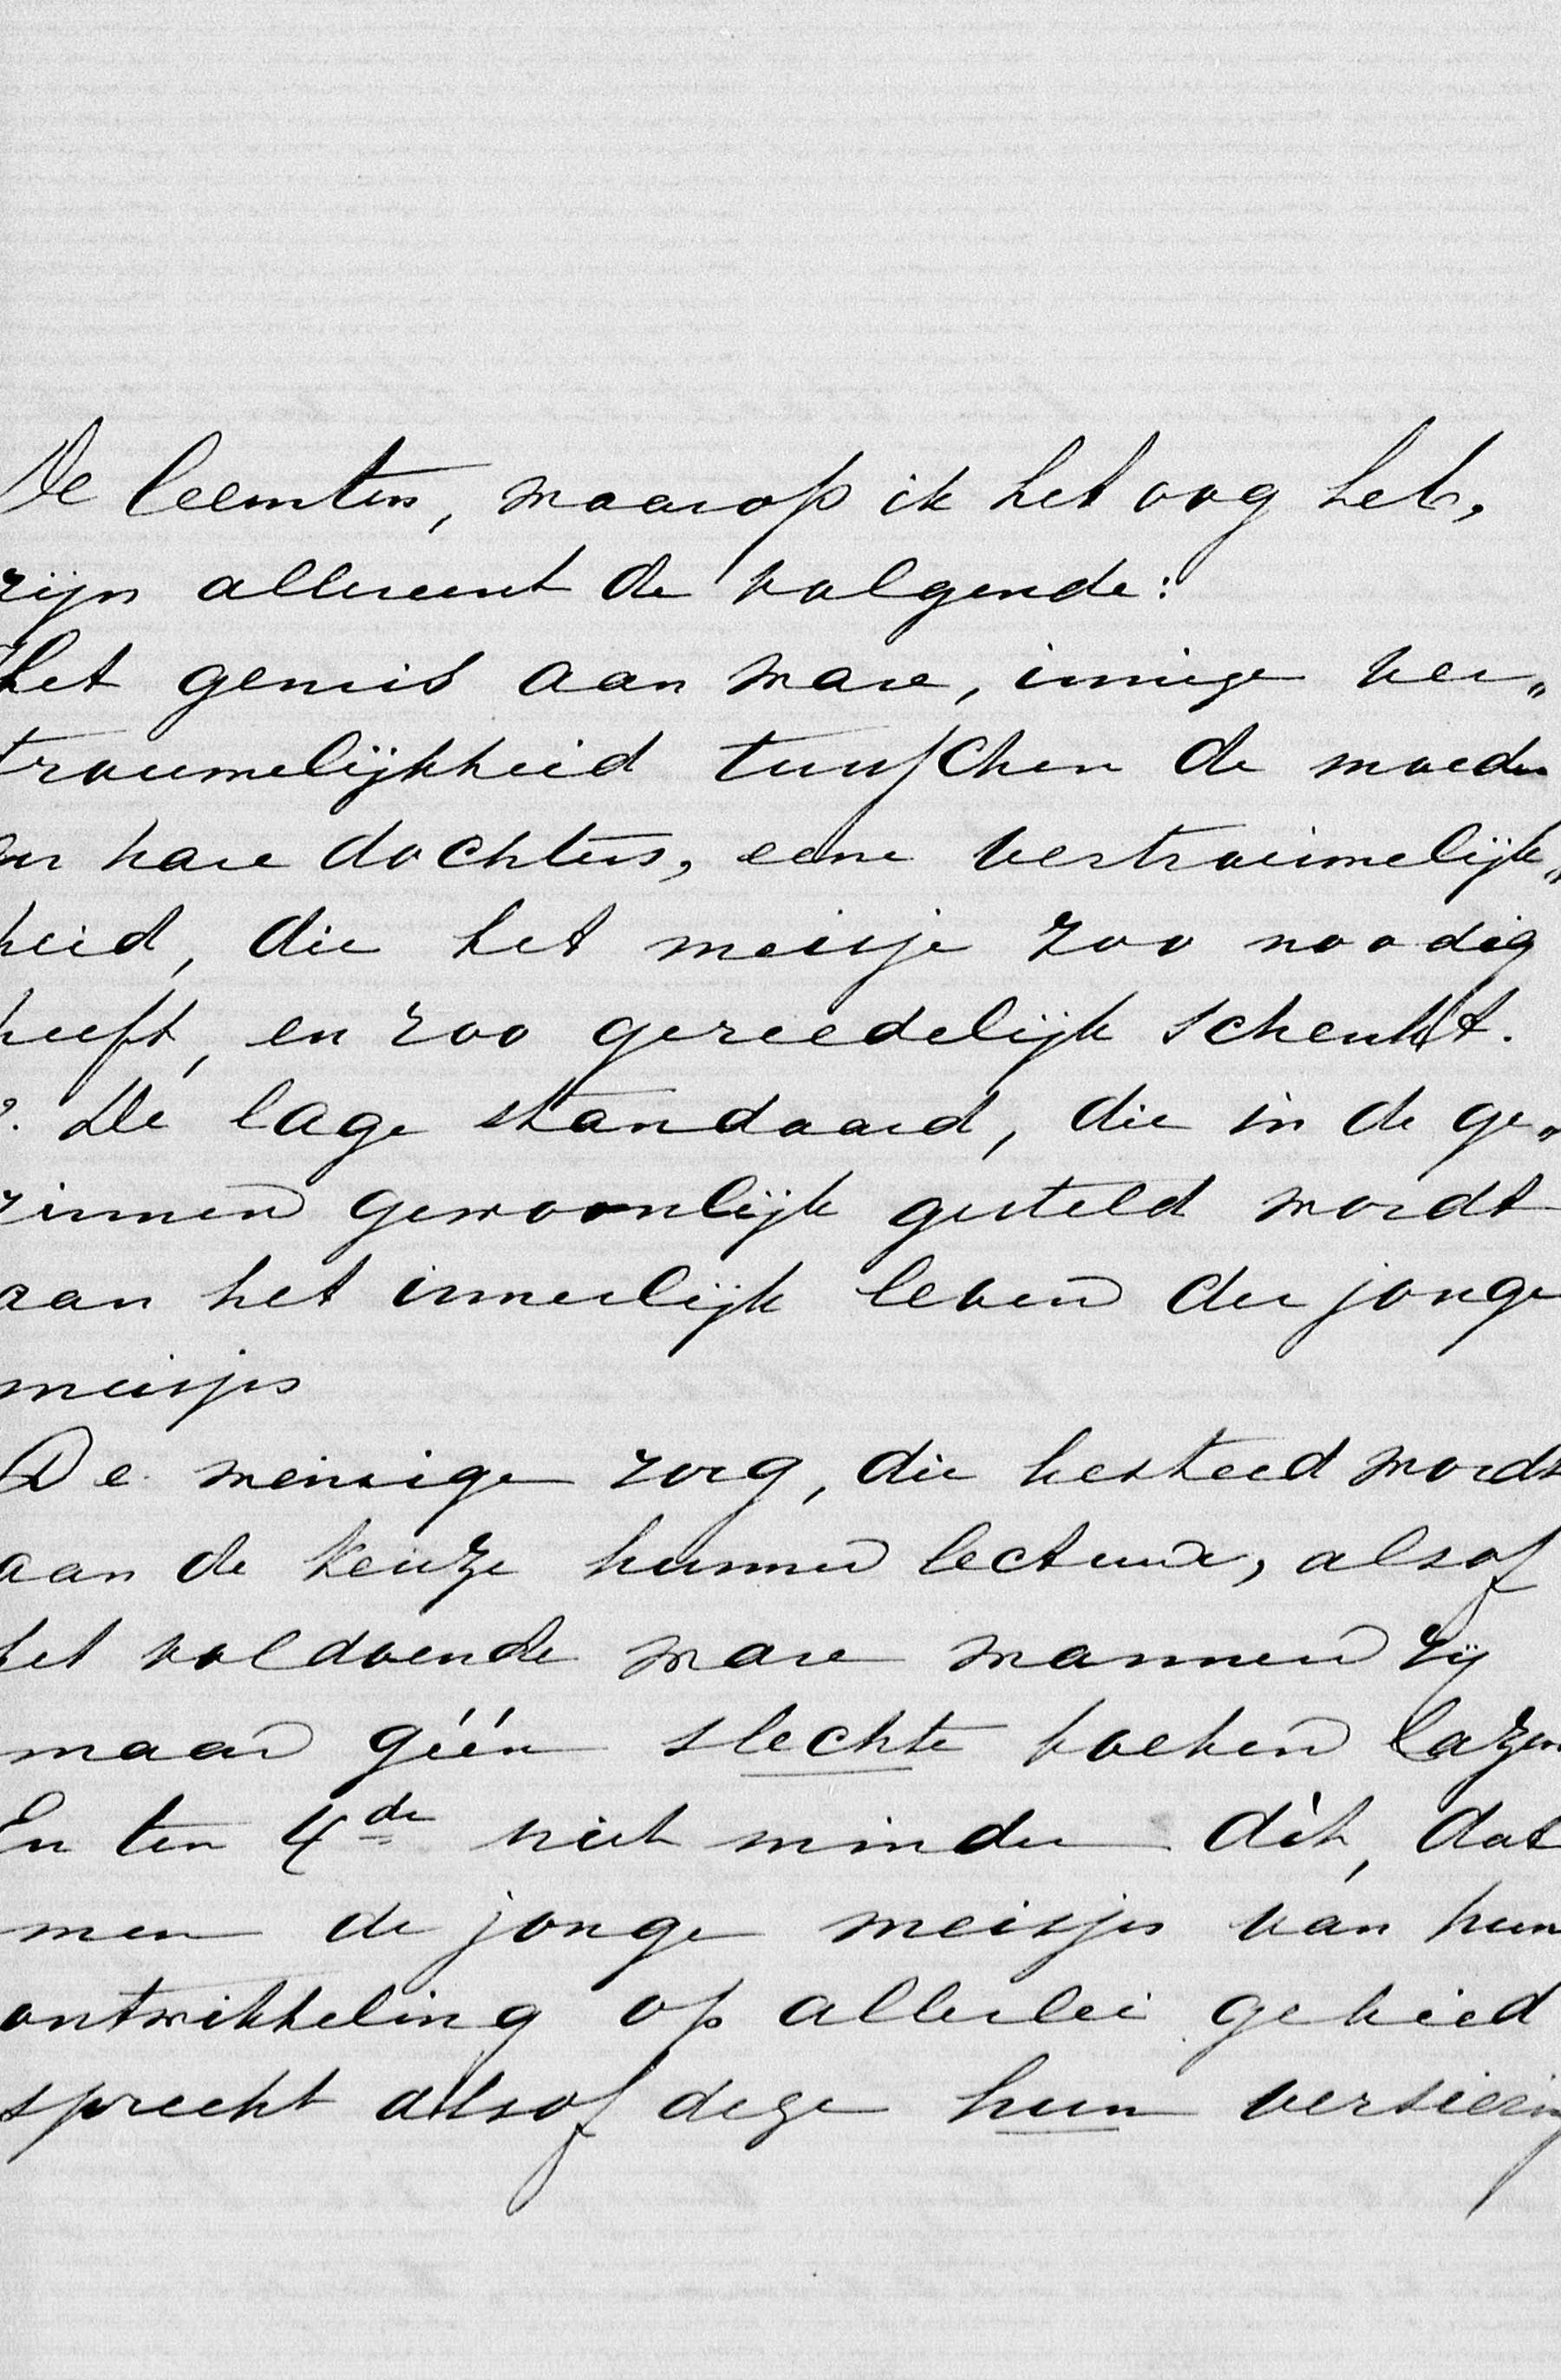 De leemten, waarop ik het oog heb,
zijn allereerst de volgende:
Het gemis aan ware, innige ver„
trouwelijkheid tusschen de moeder
en hare dochters, eene vertrouwelijk„
heid, die het meisje zoo noodig
heeft, en zoo gereedelijk schenkt.
2. De lage standaard, die in de ge„
zinnen gewoonlijk gesteld wordt
aan het innerlijk leven der jonge
meisjes
De weinige zorg, die besteed wordt
aan de keuze hunner lectuur, alsof
het voldoende ware wanneer zij
maar géén slechte boeken lazen
En ten 4de niet minder dìt, dat
men de jonge meisjes van hun
ontwikkeling op allerlei gebied
spreekt alsof deze hun versiering